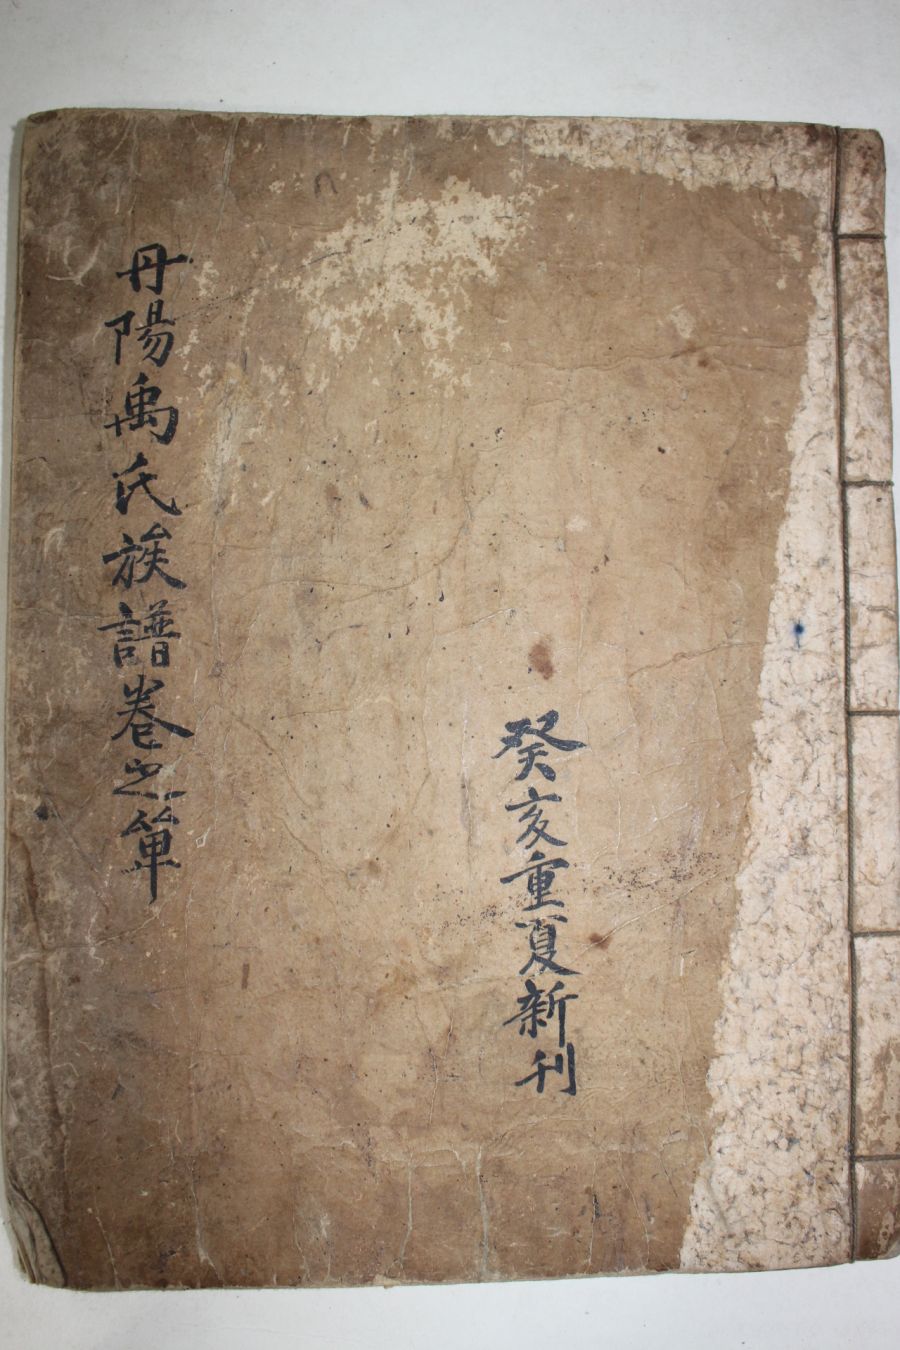 癸亥重夏新刊
丹陽禹氏族譜卷之單